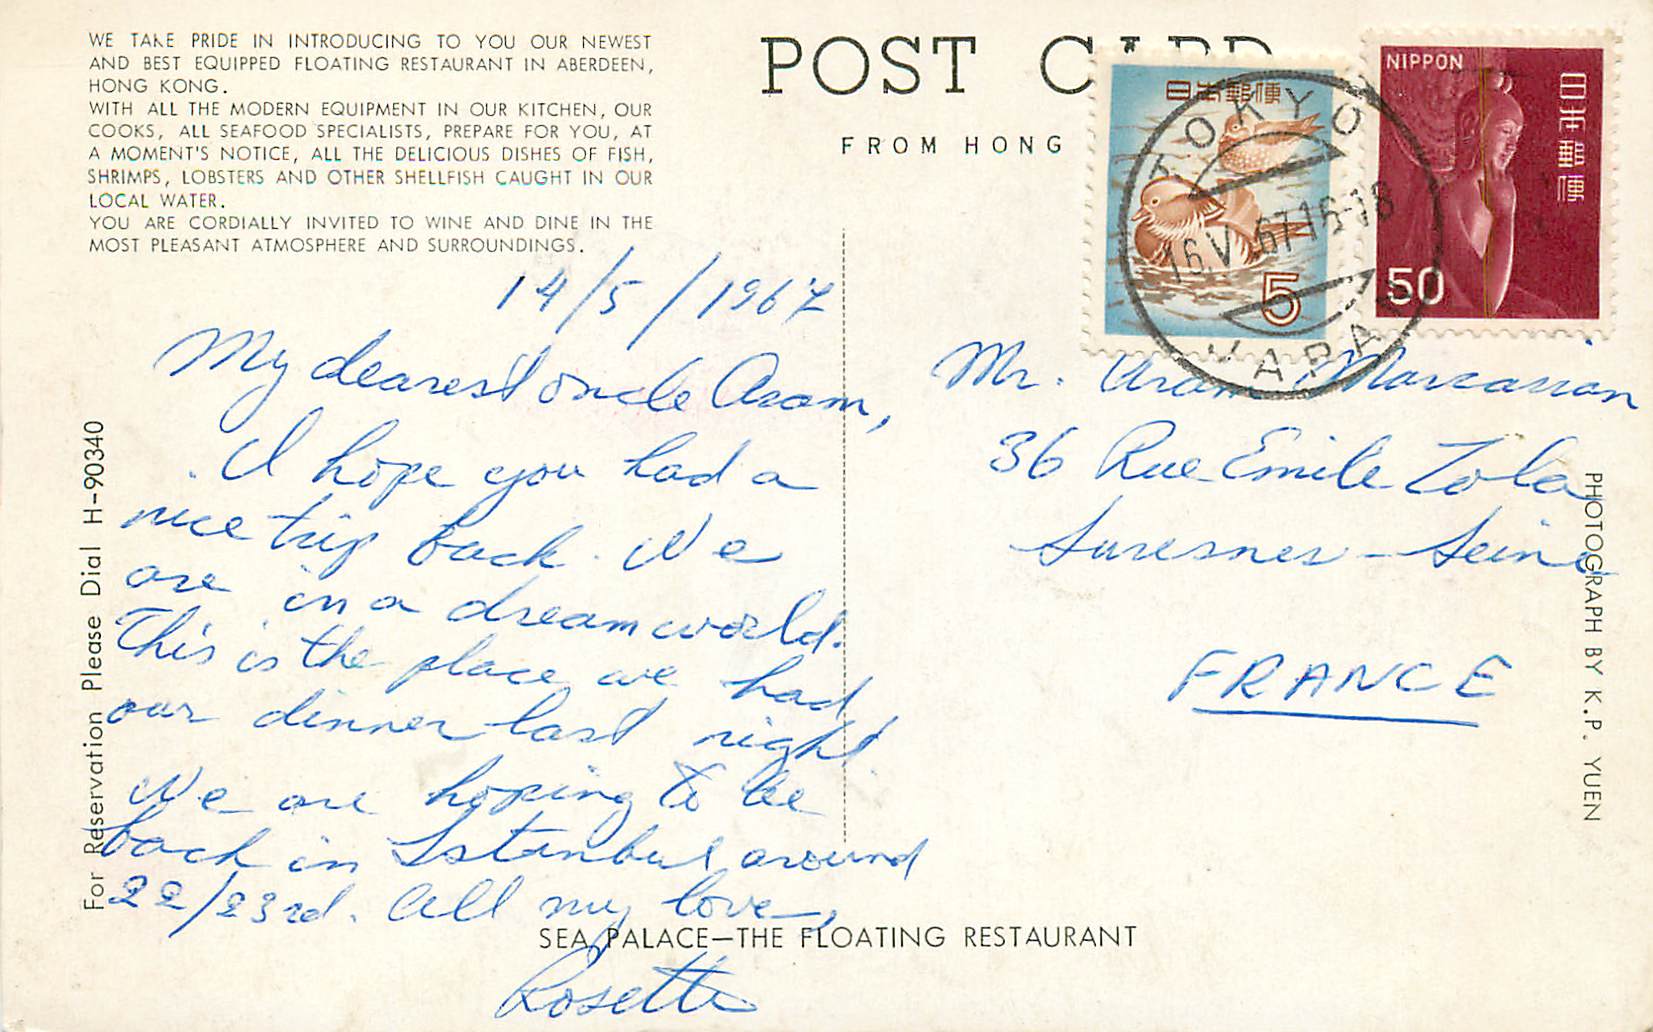 WE TAKE PRIDE IN INTRODUCING TO YOU OUR NEWEST
AND BEST EQUIPPED FLOATING RESTAURANT IN ABERDEEN,
HONG KONG.
WITH ALL THE MODERN EQUIPMENT IN OUR KITCHEN, OUR
COOKS, ALL SEAFOOD SPECIALISTS, PREPARE FOR YOU, AT
A MOMENT'S NOTICE, ALL THE DELICIOUS DISHES OF FISH,
SHRIMPS, LOBSTERS AND OTHER SHELLFISH CAUGHT IN OUR
LOCAL WATER.
YOU ARE CORDIALLY INVITED TO WINE AND DINE IN THE
MOST PLEASANT ATMOSPHERE AND SURROUNDINGS.
14/5/1967
My dearest oncle Aram,
I hope you had a
nice trip back. We
are in a dream world.
This is the place we had
our dinner last night
We are hoping to be
back in Istanbul around
22/23rd. All my love,
Rosette
For Reservation Please Dial H-90340
SEA PALACE—THE FLOATING RESTAURANT
POST CARD
FROM HONG
日本郵便
5
NIPPON
日本郵便
50
TOKYO
16.V.67 16-18
JAPAN
Mr. Aram Marcarian
36 Rue Emile Zola
Suresnes - Seine
FRANCE
PHOTOGRAPH BY K.P. YUEN